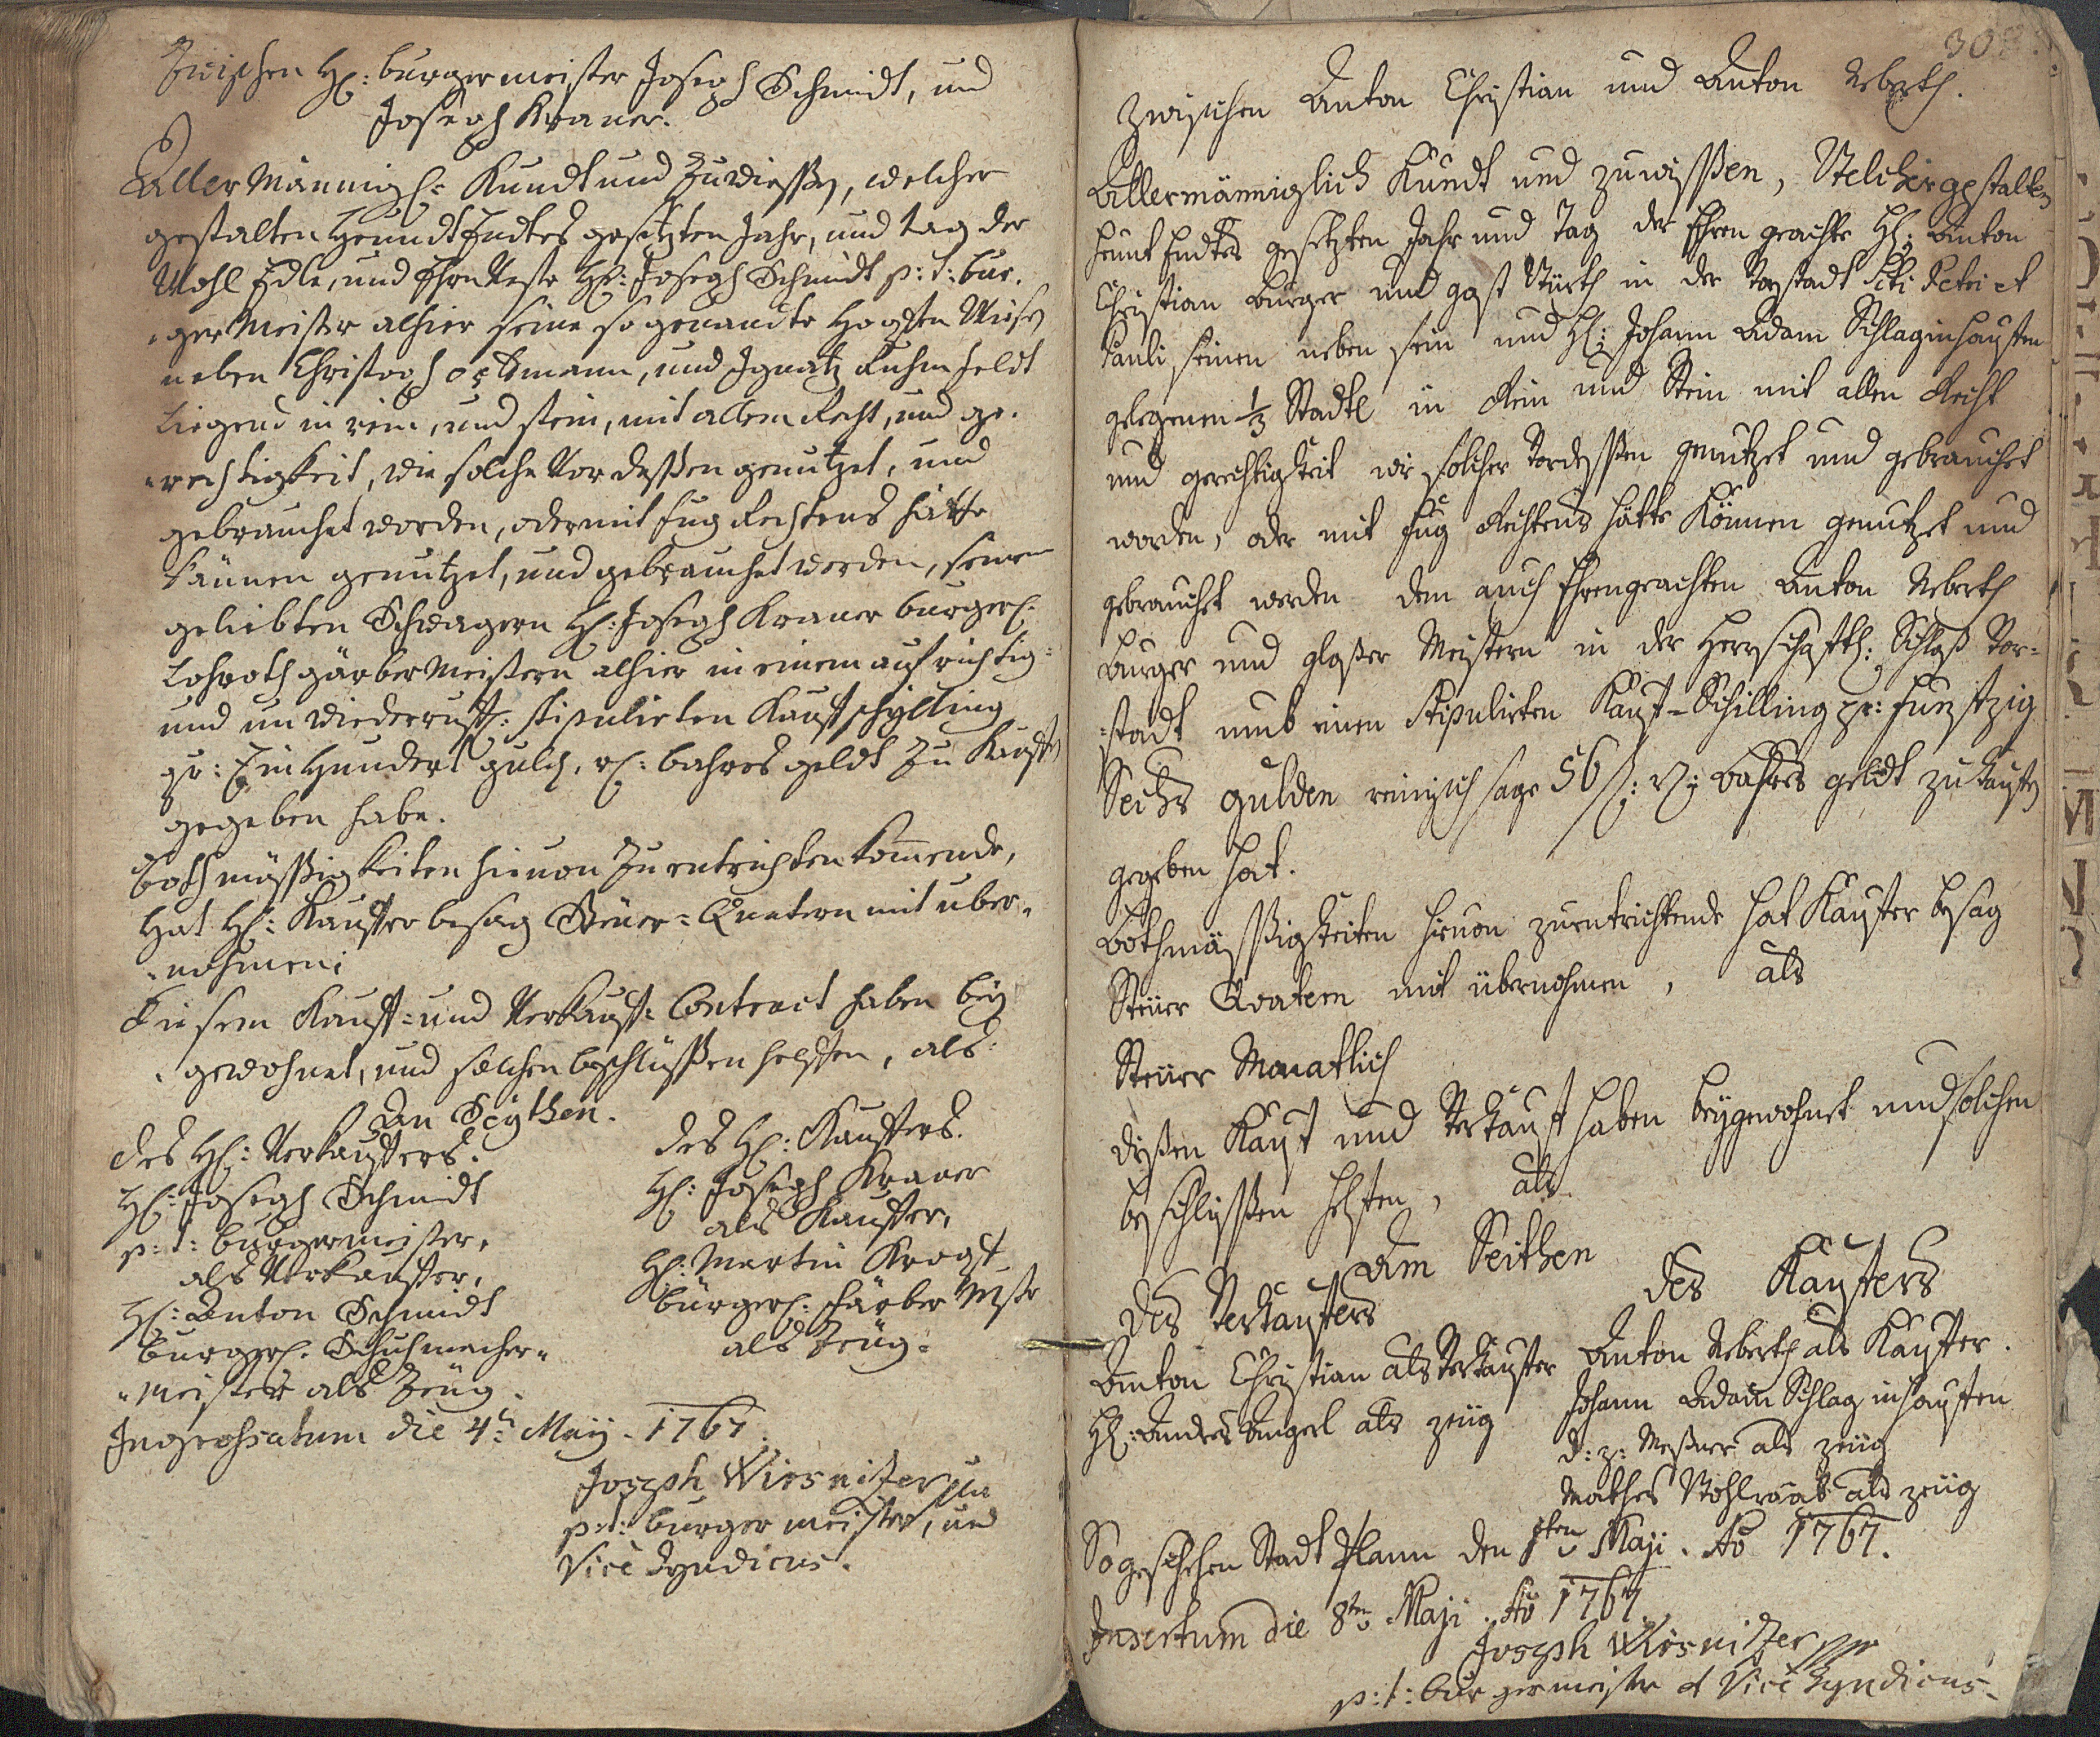 Zwischen H: burgermeister Joseph Schmidt, und
Joseph Kraner.
Aller Männigl: Kundt und Zuwissen, welcher
gestalten Heundt Endtes gesetzten Jahr, und tag der
Wohl Edle, und Ehrnveste H: Joseph Schmidt p: t: bur,
germeister alhier seine so genandte Wiesen
neben Christoph, und Ignatz
Liegend in rein, und stein, mit allem Recht, und ge,
rechtigkeit, wie solche Vor dessen genutzet, und
gebrauchet worden, oder mit fug Rechtens hätte
können genutzet, und gebrauchet werden, seinem
geliebten Schwagern H: Joseph Kraner burgerl:
Lohroth gärber Meistern alhier in einem aufrichtig=
und unwiederruffl: stipulirten Kauffschylling
pr: Ein Hundert guld, r: bahres geldt zu Kauffen
gegeben habe.
Bothmässigkeiten hievon zu entrichten kommende,
Hat H: Kauffer besag Steuer=Quatern mit uber,
nohmen:
Diesem Kauff= und Verkauff= Contract haben bey
gewohnet, und solchen beschlüssen helffen, als:
An Seythen.
des H: Verkauffers.
des H: Kauffers.
H: Joseph Schmidt
H: Joseph Kraner
p: t: burgermeister,
als Kauffer,
als Verkauffer,
H: Martin
H: Anton Schmidt
bürgerl: färber Mstr
burgerl. Schuhmacher=
als Zeug.
Meister als Zeug.
Ingrossatum die 4t Maij. 1767.
Joseph Wiesnitzer
p: t: burgermeister, und
Vice Syndicus.
Zwischen Anton Christian und Anton Neberth.
Allermänniglich Kundt und zuwissen, Welchergestalten
heunt Endtes gesetzten Jahr und Tag der Ehren geachte H: Anton
Christian Burger und gast Würth in der Vorstadt Sti Petri et
Pauli seinen neben sein und H: Johann Adam Schlaginhauffen
gelegenen 1/3 Stadtl in Rein und Stein mit allen Recht
und gerechtigkeit wie solcher Vordessen genutzet und gebrauchet
worden, oder mit fug Rechtens hätte Können genutzet und
gebrauchet werden dem auch Ehrengeachten Anton Neberth
burger und glaser Meistern in der Herrschaftl: Schloß Vor=
=stadt umb einen Stipulirten Kauf=Schilling pr: Funfftzig
Sechs gulden reinisch sage 56 f: r: bahres geldt zu kauffen
gegeben hat.
Bothmässigkeiten hievon zuentrichtende hat Kauffer besag
Steuer Quatern mit übernohmen, als
Steuer Monatlich
disen Kauf und Verkauff haben beygewohnet und solchen
beschlissen helffen, als
Am Seithen
des Verkauffers
des Kauffers
Anton Christian als Verkauffer
Anton Neberth als Kauffer.
H: Andres Angerl als zeug
Johann Adam Schlaginhauffen
d: z: Messner als zeug
Mathes Wohlraab als zeug
So geschehen Stadt Plann den 1ten Maji. Ao 1767.
Insertum die 8ten Maji. Ao 1767
Joseph Wiesnitzer
p: t: burgermeister et Vice Syndicus